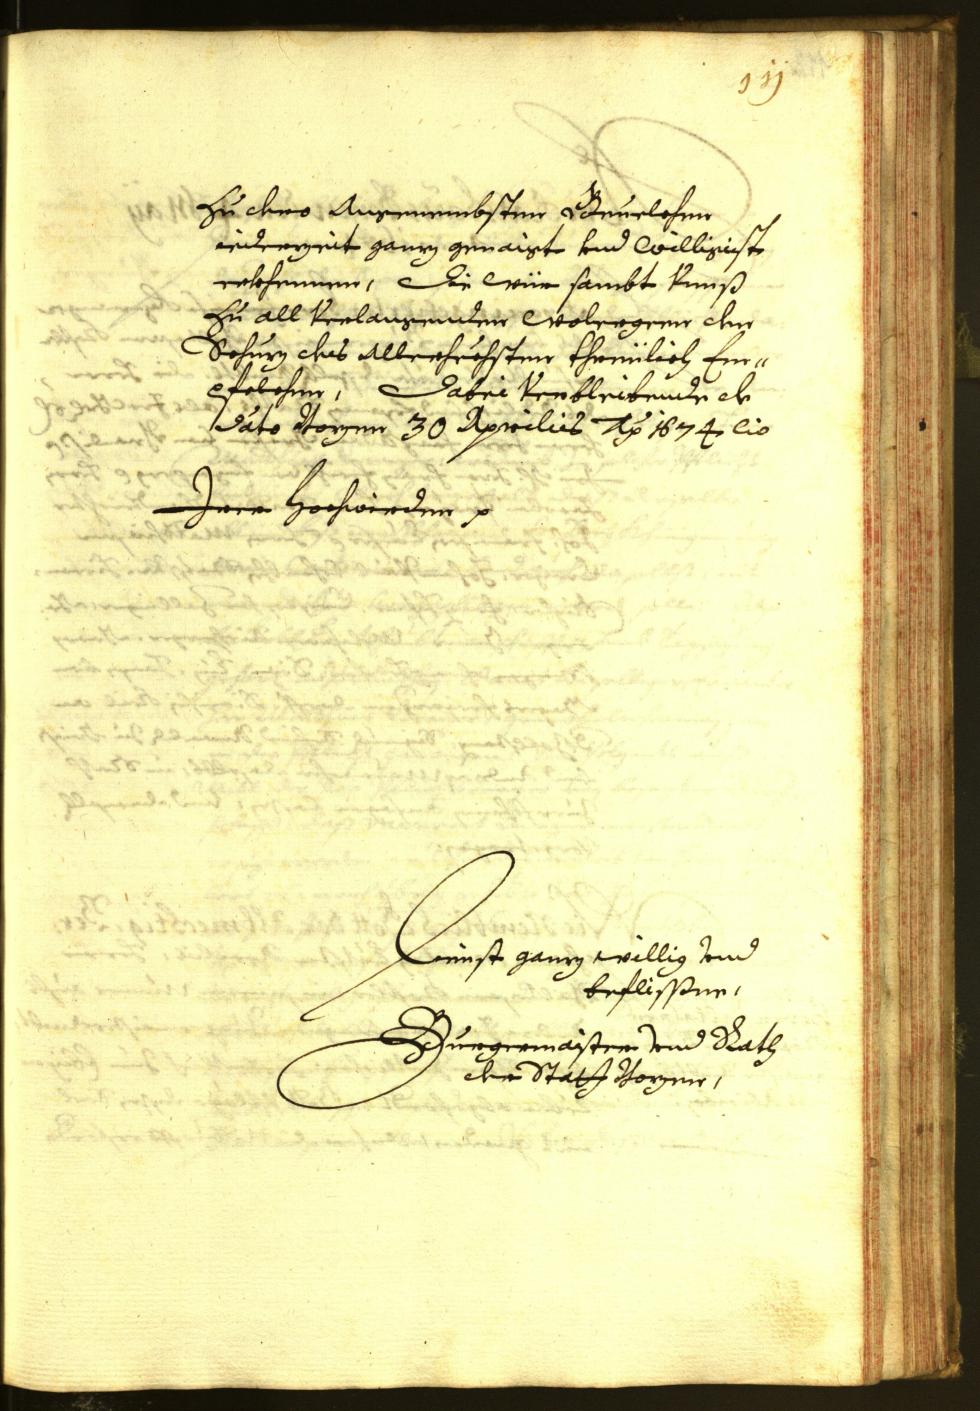 111
Zu dero Angenembsten Bevelchen
iederzeit ganz genaigt und willigist
erkhennen, Die wür sambt unnß
zu all verlangenden wolergeen den
Schuz des Allerhöchsten threulich Em-
pfelchen, Dabei verbleibende de
Dato Bozen 30 Aprilis Ao 1674
Irer Hochwürden
Dienst ganz willig und
beflissne,
Burgermaister und Rath
der Statt Bozen,